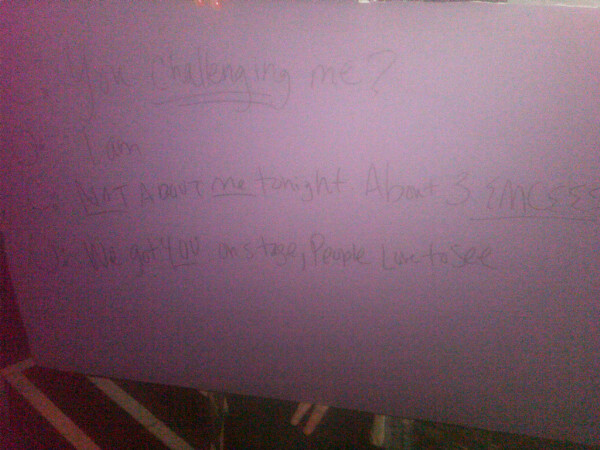 : You challenging me?
: I am
: NOT ABOUT me tonight. About 3 EMCEES
: We got YOU on stage, People Love to see